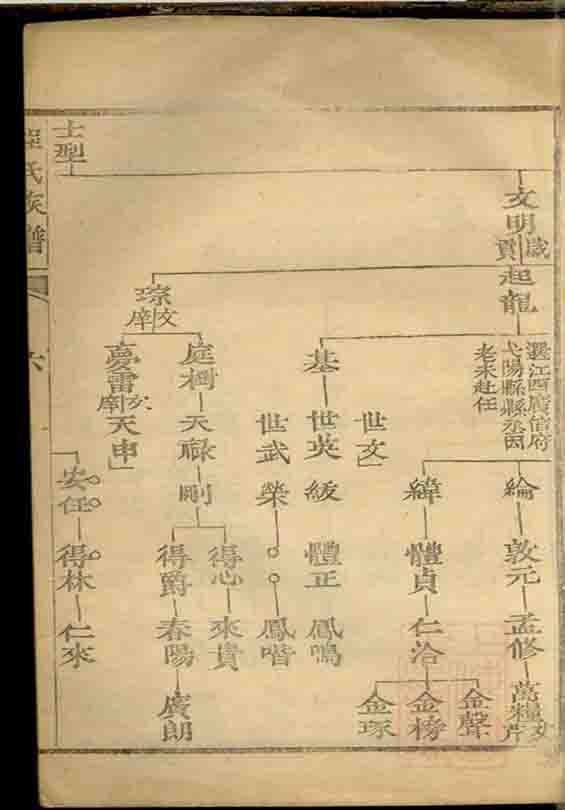 文明
歲貢
起龍
選江西廣信府
弋陽縣縣丞因
老未赴任
綸
敦元
孟修
萬糧
文庠
緯
體貞
仁洽
金聲
金榜
金琢
世文
基
世英
緩
體正
鳳鳴
世武
榮
鳳喈
琮
文庠
庭桐
天祿
剛
得心
來貴
得爵
春陽
廣朗
夢雷
文庠
天申
士型
安任
得林
仁來
氏族譜
六